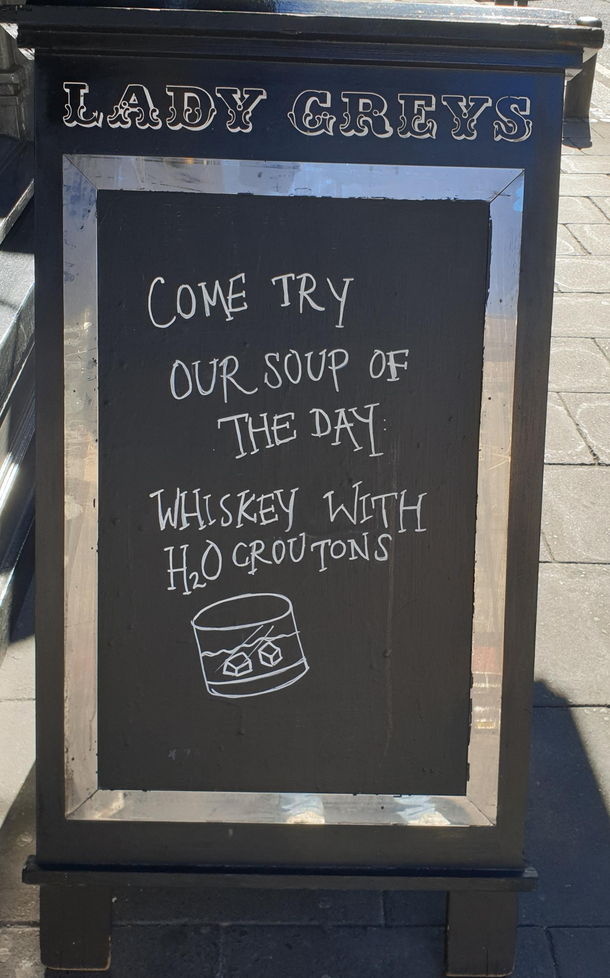 LADY GREYS
COME TRY
OUR SOUP OF
THE DAY:
WHISKEY WITH
H₂O CROUTONS